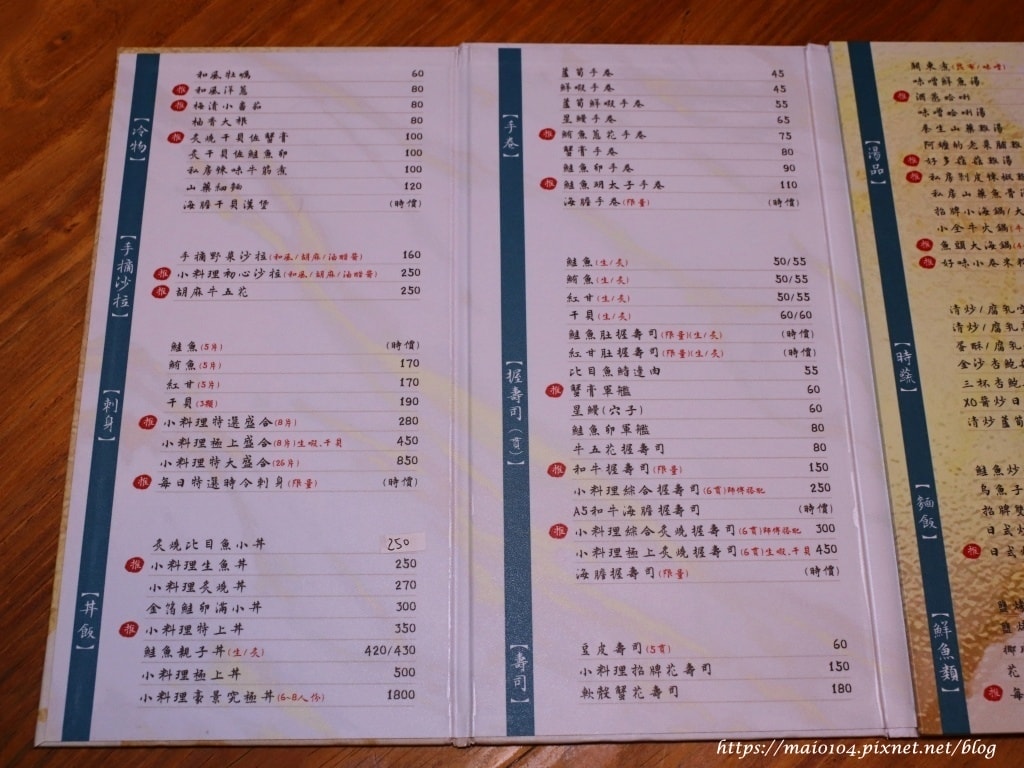 【冷物】
和風牡蠣 60
推 和風洋蔥 80
推 梅清小番茄 80
柚香大根 80
推 炙燒干貝佐蟹膏 100
炙干貝佐鮭魚卵 100
私房辣味牛筋煮 100
山藥細麵 120
海膽干貝漢堡 (時價)
【手摘沙拉】
手摘野菜沙拉(和風/胡麻/油醋醬) 160
推 小料理初心沙拉(和風/胡麻/油醋醬) 250
推 胡麻牛五花 250
【刺身】
鮭魚(5片) (時價)
鮪魚(5片) 170
紅甘(5片) 170
干貝(3顆) 190
推 小料理特選盛合(8片) 280
小料理極上盛合(8片)生蝦、干貝 450
小料理特大盛合(26片) 850
推 每日特選時令刺身(限量) (時價)
【丼飯】
炙燒比目魚小丼 250
推 小料理生魚丼 250
小料理炙燒丼 270
金箔鮭卵滿小丼 300
推 小料理特上丼 350
鮭魚親子丼(生/炙) 420/430
小料理極上丼 500
小料理豪景究極丼(6~8人份) 1800
【手卷】
蘆筍手卷 45
鮮蝦手卷 45
蘆筍鮮蝦手卷 55
星鰻手卷 65
推 鮪魚蔥花手卷 75
蟹膏手卷 80
鮭魚卵手卷 90
推 鮭魚明太子手卷 110
海膽手卷(限量) (時價)
【握壽司(貫)】
鮭魚(生/炙) 50/55
鮪魚(生/炙) 50/55
紅甘(生/炙) 50/55
干貝(生/炙) 60/60
鮭魚肚握壽司(限量)(生/炙) (時價)
紅甘肚握壽司(限量)(生/炙) (時價)
比目魚鰭邊肉 55
推 蟹膏軍艦 60
星鰻(穴子) 60
鮭魚卵軍艦 80
牛五花握壽司 80
推 和牛握壽司(限量) 150
小料理綜合握壽司(6貫)師傅搭配 250
A5和牛海膽握壽司 (時價)
推 小料理綜合炙燒握壽司(6貫)師傅搭配 300
小料理極上炙燒握壽司(6貫)生蝦、干貝 450
海膽握壽司(限量) (時價)
【壽司】
豆皮壽司(5貫) 60
小料理招牌花壽司 150
軟殼蟹花壽司 180
【湯品】
關東煮(昆布/味噌)
味噌鮮魚湯
推 酒蒸哈唎
味噌哈唎湯
養生山藥雞湯
阿嬤的老菜脯雞
推 好多菇菇雞湯
推 私房剝皮辣椒雞
私房山藥魚膏
招牌小海鍋/大
小全牛火鍋
推 魚頭大海鍋
推 好味小卷米粉
【時蔬】
清炒/腐乳
清炒/腐乳
蛋酥/腐乳
金沙杏鮑
三杯杏鮑
XO醬炒
清炒蘆筍
【麵飯】
鮭魚炒
烏魚子
招牌
日式
推 日式
【鮮魚類】
鹽
鹽
椰
花
推 每
https://maio104.pixnet.net/blog